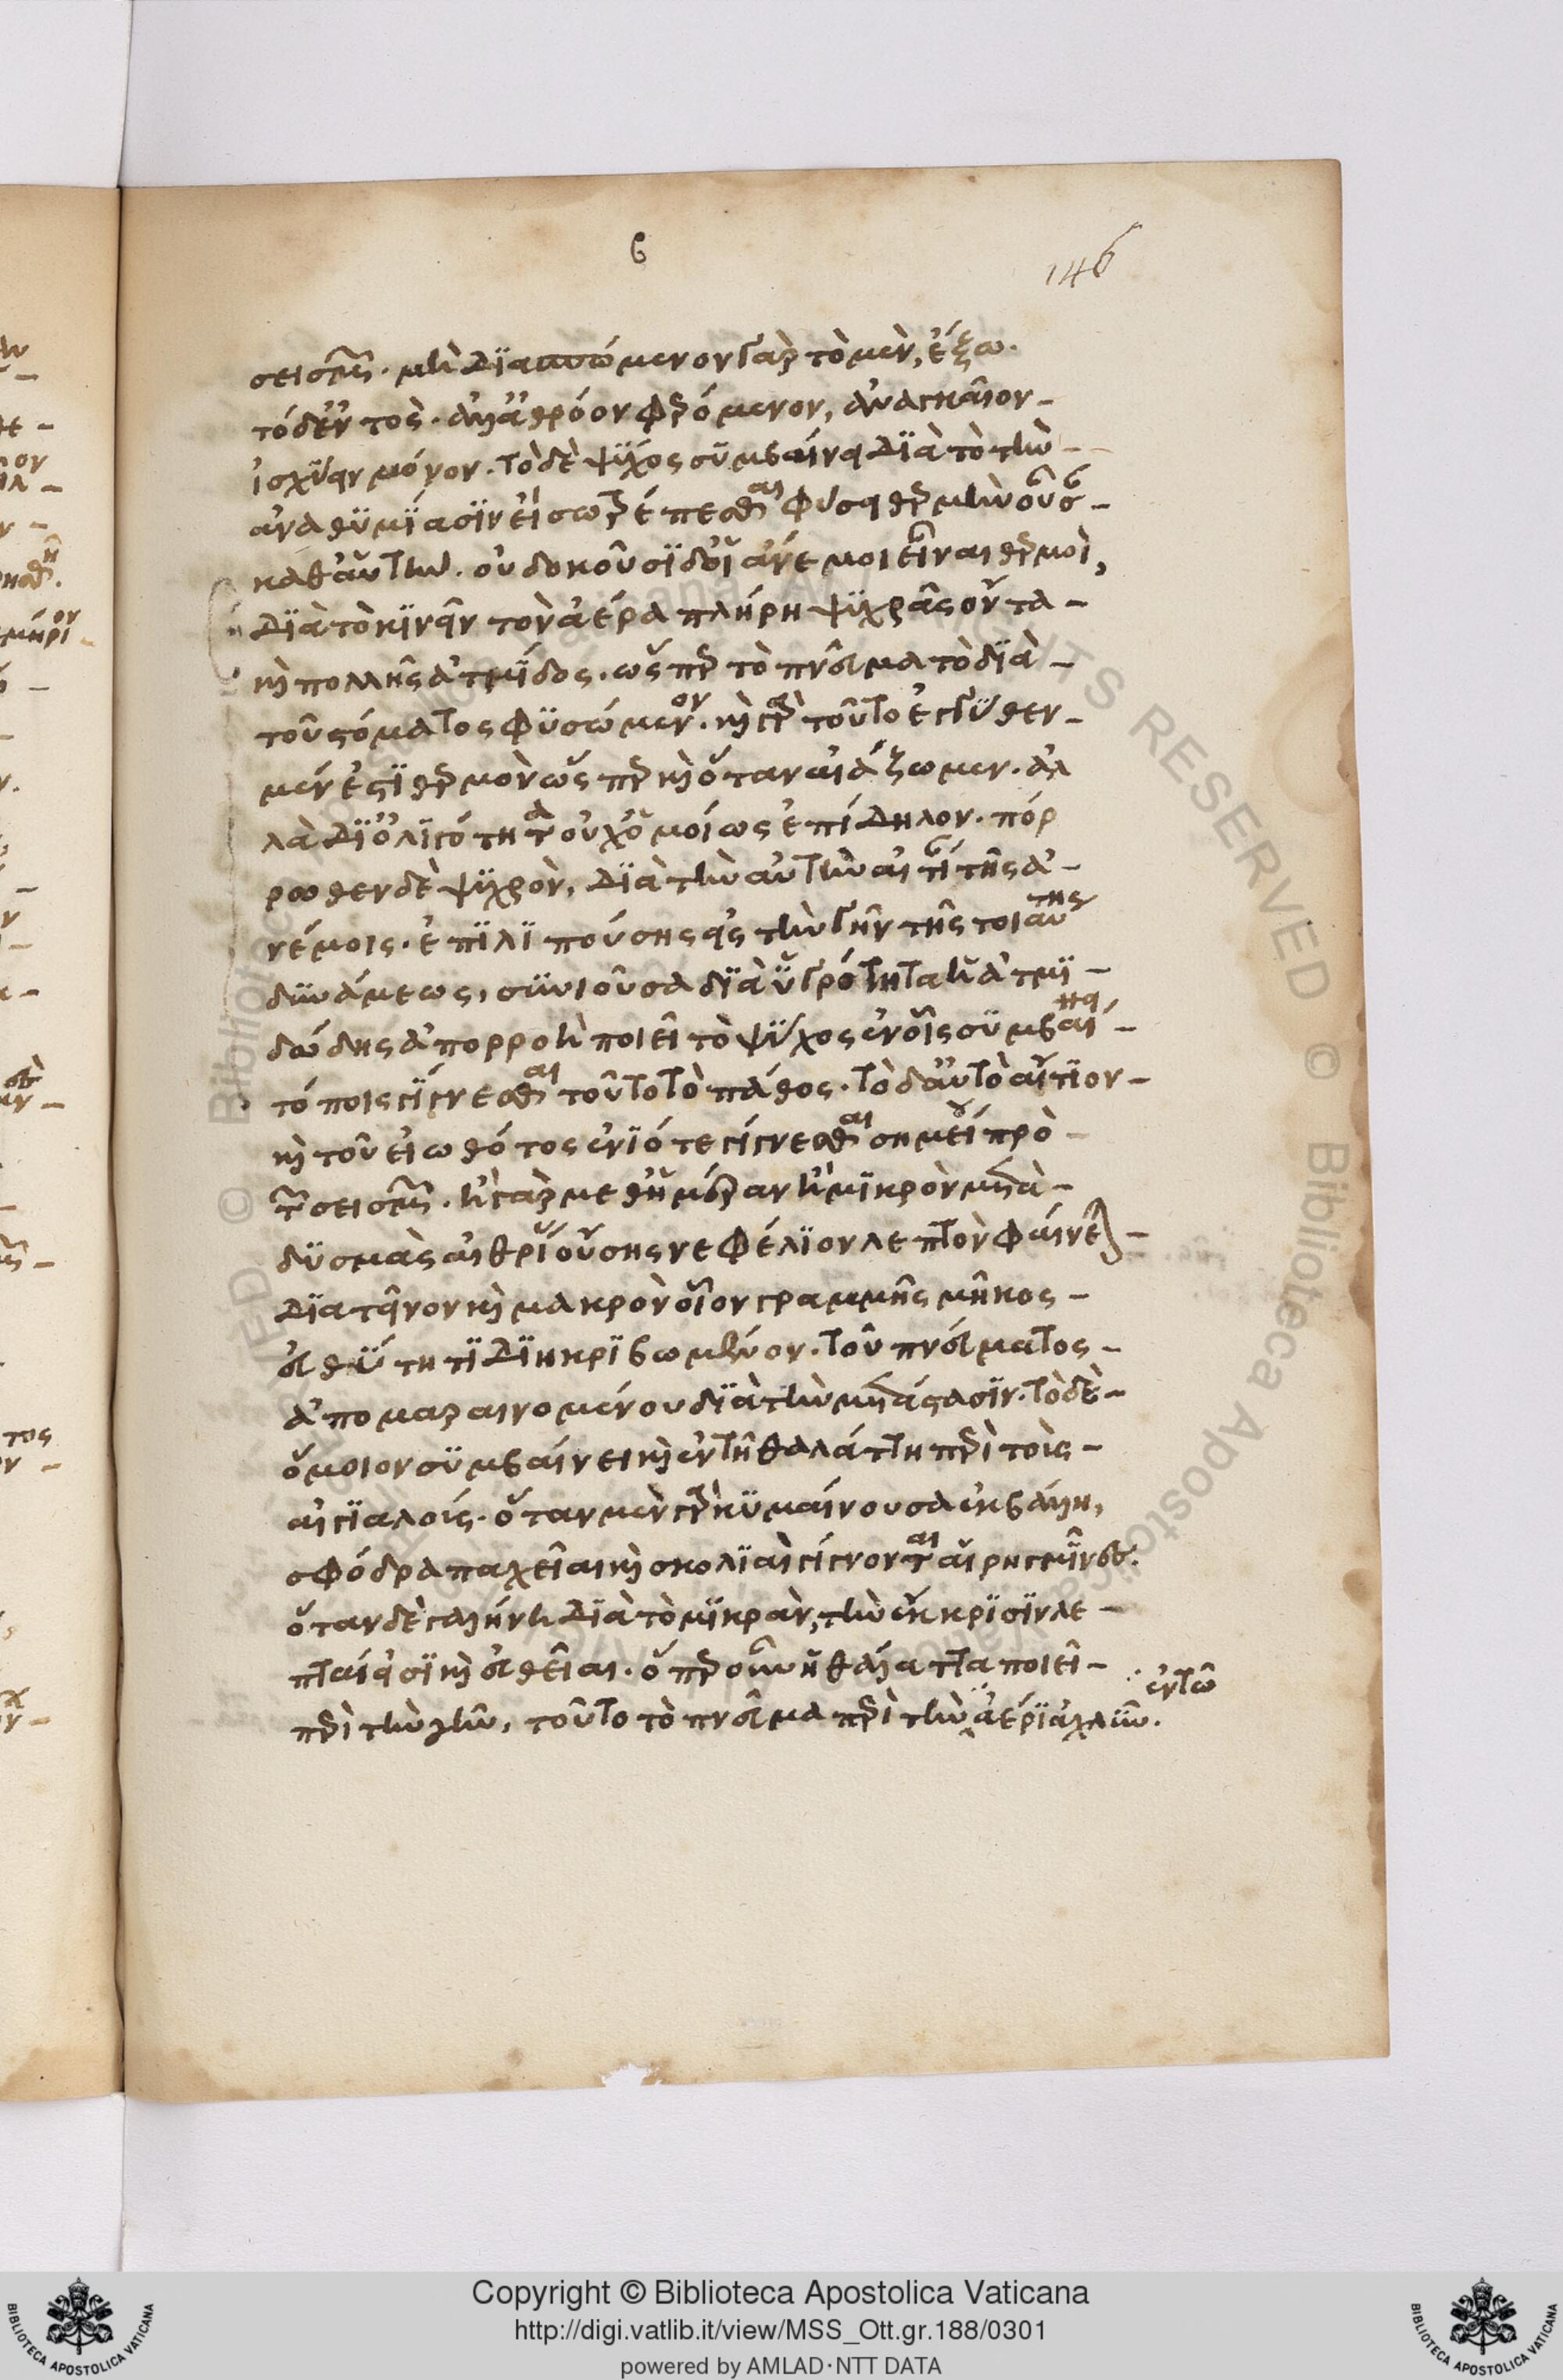 6
146
σεισμούς. μὴ διασπώμενον γὰρ τὸ μὲν, ἔξω.
τὸ δ' ἐντὸς. ἀλλ' ἀθρόον φερόμενον, ἀναγκαῖον
ἰσχύειν μόνον. τὸ δὲ ψῦχος συμβαίνει διὰ τὸ τὴν
ἀναθυμίασιν εἴσω τρέπεσθαι φύσει θερμὴν οὖσαν
καθ' αὑτήν. οὐ δοκοῦσι δ' οἱ ἄνεμοι εἶναι θερμοὶ,
διὰ τὸ κινεῖν τὸν ἀέρα πλήρη ψυχρᾶς ὄντα
καὶ πολλῆς ἀτμίδος. ὥσπερ τὸ πνεῦμα τὸ διὰ
τοῦ στόματος φυσώμενον. καὶ γὰρ τοῦτο ἐγγύθεν
μέν ἐστι θερμὸν ὥσπερ καὶ ὅταν ἀάζωμεν. ἀλ
λὰ δι' ὀλιγότητα οὐχ ὁμοίως ἐπίδηλον. πόρ
ρωθεν δὲ ψυχρὸν, διὰ τὴν αὐτὴν αἰτίαν τῆς ἀ
νέμοις. ἐπιλιπούσης εἰς τὴν γῆν τῆς τοιαύτης
δυνάμεως, συνιοῦσα δι' ὑγρότητα ἡ ἀτμι
δώδης ἀπορροὴ ποιεῖ τὸ ψῦχος ἐν οἷς συμβαίνει
τόποις γίγνεσθαι τοῦτο τὸ πάθος. τὸ δ' αὐτὸ αἴτιον
καὶ τοῦ εἰωθότος ἐνίοτε γίγνεσθαι σημείου πρὸ
τῶν σεισμῶν. ἢ γὰρ μεθ' ἡμέραν ἢ μικρὸν μετὰ
δυσμὰς αἰθρίας οὔσης νεφέλιον λεπτὸν φαίνεται
διατεῖνον καὶ μακρὸν οἷον γραμμῆς μῆκος
εὐθύτητι διηκριβωμένον. τοῦ πνεύματος
ἀπομαραινομένου διὰ τὴν μετάστασιν. τὸ δὲ
ὅμοιον συμβαίνει καὶ ἐν τῇ θαλάττῃ περὶ τοῖς
αἰγιαλοῖς. ὅταν μὲν γὰρ κυμαίνουσα ἐκβάλλῃ,
σφόδρα παχεῖαι καὶ σκολιαὶ γίγνονται αἱ ῥηγμῖνες.
ὅταν δὲ γαλήνη διὰ τὸ μικρὰν, τὴν ἔκκρισιν λε
πταί εἰσι καὶ εὐθεῖαι. ὅπερ οὖν ἡ θάλαττα ποιεῖ
ἐν τῶ
περὶ τὴν γῆν, τοῦτο τὸ πνεῦμα περὶ τὴν ἀέρι ἀχλύν.
Copyright © Biblioteca Apostolica Vaticana
http://digi.vatlib.it/view/MSS_Ott.gr.188/0301
powered by AMLAD·NTT DATA